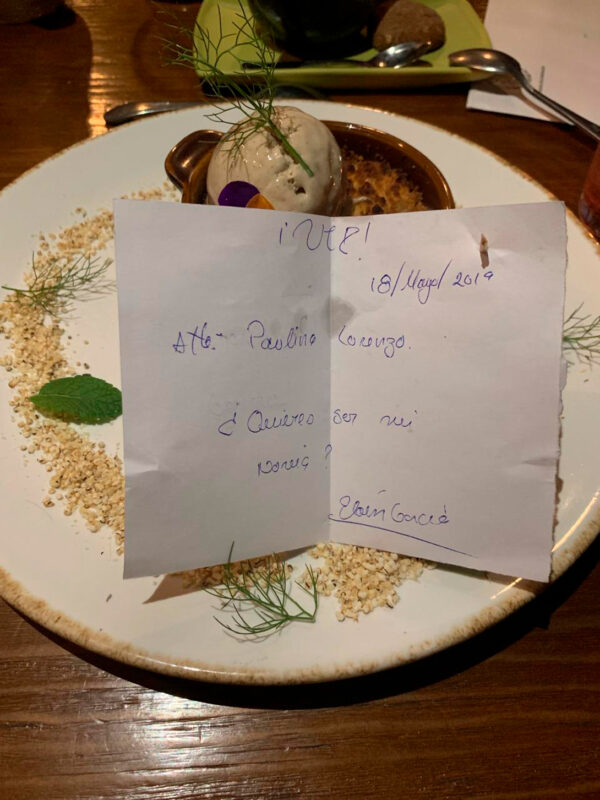 18/Mayo/2019
Atte. Paulina Lorenzo.
¿Quieres ser mi
novia?
Elain Garcia